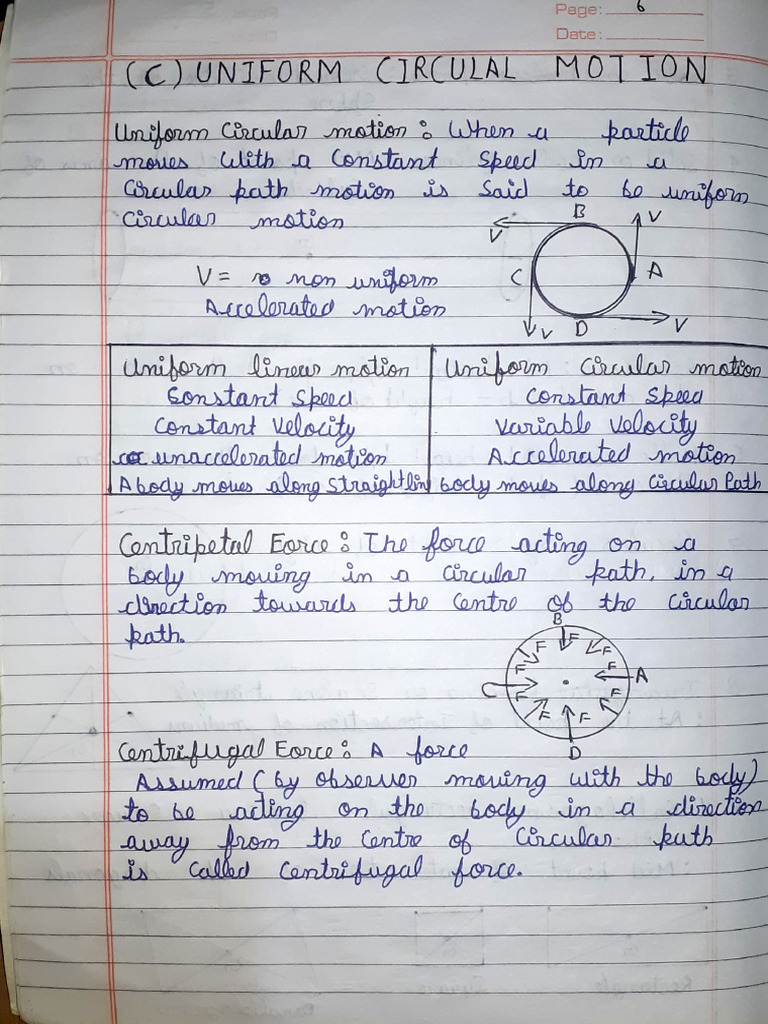 Page: 6
Date:
(C) UNIFORM CIRCULAL MOTION
Uniform Circular motion : When a particle
moves With a Constant Speed in a
Circular path motion is Said to be uniform
Circular motion
B
V
V
C
A
V
D
V
V = non uniform
Accelerated motion
Uniform linear motion
Constant Speed
Constant Velocity
unaccelerated motion
A body moves along Straight lin
Uniform Circular motion
Constant Speed
Variable Velocity
Accelerated motion
body moves along Circular Path
Centripetal Force : The force acting on a
body moving in a Circular path, in a
direction towards the Centre of the Circular
path.
B
F
F
F
F
F
A
C
F
F
F
F
F
D
Centrifugal Force : A force
Assumed (by observer moving with the body)
to be acting on the body in a direction
away from the Centre of Circular path
is Called Centrifugal force.